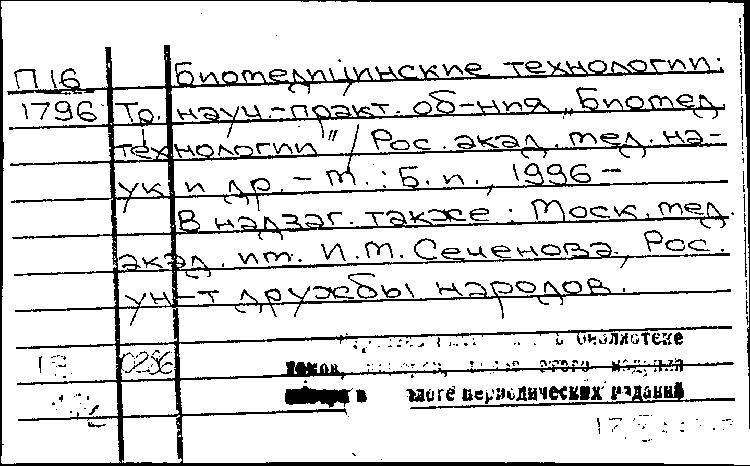 П 16 Биомедицинские технологии:
1796 Тр. науч.-практ. об-ния „Биомед.
технологии" / Рос. акад. мед. на-
ук и др. – М. : Б. и., 1996 –
В надзаг. также: Моск. мед.
акад. им. И.М. Сеченова, Рос.
ун-т дружбы народов.
в библиотеке
0286 томов,
в алоге периодических изданий